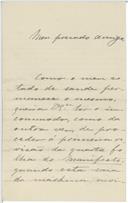 Meu prezado amigo
Como o meu es-
tado de saude per-
manece o mesmo,
queira Vª. ter o in-
commodo, como da
outra vez, de pro-
ceder á primeira re-
visão da quarta fo-
lha do Manifesto,
quando esta saia
da machina